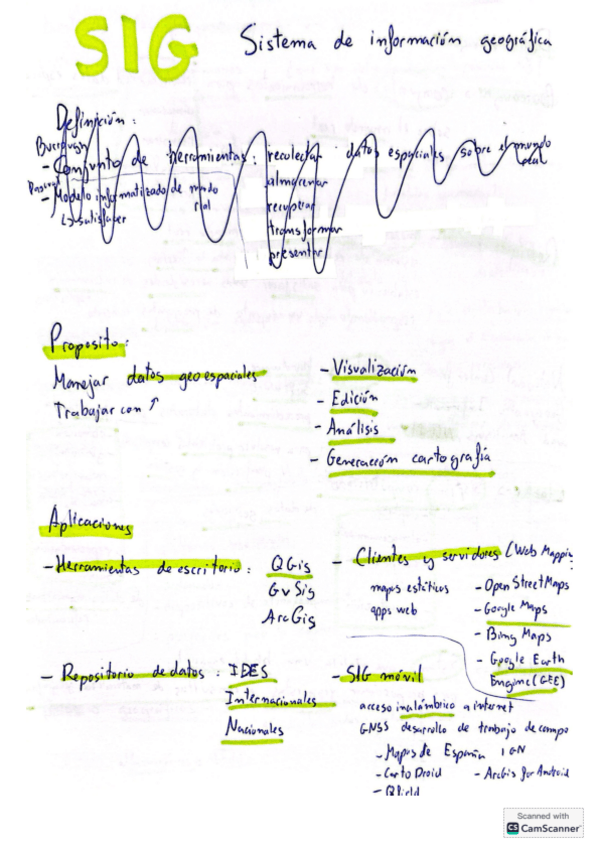 SIG Sistema de información geográfica
Definición:
Burrough
- Conjunto de herramientas: recolectar datos espaciales sobre el mundo real
almacenar
recuperar
transformar
presentar
- Modelo informatizado de mundo
real
↳ satisfacer
Proposito:
Manejar datos geoespaciales
Trabajar con ↑
- Visualización
- Edición
- Análisis
- Generación cartografía
Aplicaciones
- Herramientas de escritorio: QGis
GvSig
ArcGis
- Clientes y servidores (Web Mappin
mapas estáticos
apps web
- OpenStreetMaps
- Google Maps
- Bimg Maps
- Google Earth
Engime (GEE)
- Repositorio de datos: IDES
Internacionales
Nacionales
- SIG móvil
acceso inalámbrico a internet
GNSS desarrollo de trabajo de campo
- Mapas de España IGN
- CartoDroid
- ArcGis for Android
- QField
Scanned with
CS CamScanner